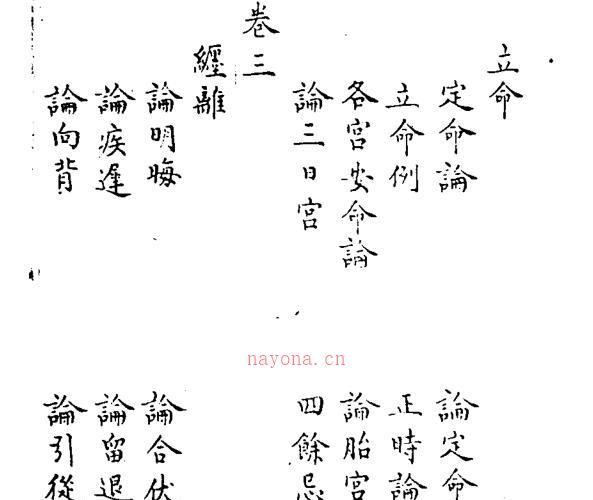 立命
定命論
論定命
立命例
正時論
各宮安命論
論胎宮
論三日宮
四餘忌
卷三
纏離
論明晦
論合伏
論疾遲
論留退
論向背
論引從
nayona.cn